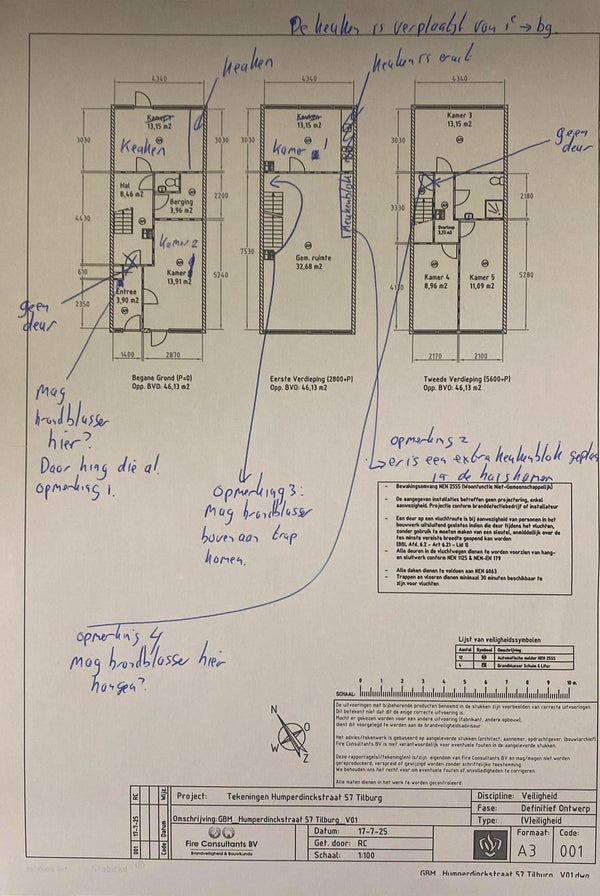 De keuken is verplaatst van 1e → bg.
keuken
keuken is eruit
4340
4340
4340
Kamer
13,15 m2
Keuken
Keuken
13,15 m2
Kamer 1
Kamer 3
13,15 m2
geen
deur
3030
3030
3030
3030
Hal
8,46 m2
Berging
3,96 m2
2200
keukenblok
2180
3330
Overloop
4430
Kamer 2
Kamer
13,91 m2
7530
Gem. ruimte
32,68 m2
Kamer 4
8,96 m2
Kamer 5
11,09 m2
610
5240
5280
2350
Entree
3,90 m2
geen
deur
1400
2870
2170
2100
Begane Grond (P=0)
Opp. BVO: 46,13 m2
Eerste Verdieping (2800+P)
Opp. BVO: 46,13 m2
Tweede Verdieping (5600+P)
Opp. BVO: 46,13 m2
Mag
brandblusser
hier?
Daar hing die al.
opmerking 1.
opmerking 2
er is een extra keukenblok geplaa
in de huiskamer
Opmerking 3:
Mag brandblusser
bovenaan trap
komen.
opmerking 4
Mag brandblusser hier
hangen?
- Bewakingsomvang NEN 2555 (Woonfunctie Niet-Gemeenschappelijk)
- De aangegeven installaties betreffen geen projectering, enkel
aanwezigheid. Projectie conform branddetectiebedrijf of installateur
- Een deur op een vluchtroute is bij aanwezigheid van personen in het
bouwwerk uitsluitend gesloten indien die deur tijdens het vluchten,
zonder gebruik te moeten maken van een sleutel, onmiddellijk over de
ten minste vereiste breedte geopend kan worden
(BBL Afd. 6.2 - Art 6.21 - Lid 1)
- Alle deuren in de vluchtwegen dienen te worden voorzien van hang-
en sluitwerk conform NEN 1125 & NEN-EN 179
- Alle daken dienen te voldoen aan NEN 6063
- Trappen en vloeren dienen minimaal 30 minuten beschikbaar te
zijn voor vluchten
Lijst van veiligheidssymbolen
Aantal Symbool Omschrijving
12 Automatische melder NEN 2555
4 Brandblusser Schuim 6 Liter
SCHAAL:
0 1 2 3 4 5 6 7 8 9 10 m.
De uitvoeringen met bijbehorende producten benoemd in de stukken zijn voorbeelden van correcte uitvoeringen.
Dit betekent niet dat dit de enige correcte uitvoering is.
Mocht er gekozen worden voor een andere uitvoering (fabrikant, andere opbouw),
dient dit voorgelegd te worden aan de brandveiligheidsadviseur.
Het advies/tekenwerk is gebaseerd op aangeleverde stukken (architect, aannemer, opdrachtgever, (bouw)archief).
Fire Consultants BV is niet verantwoordelijk voor eventuele fouten in de aangeleverde stukken.
Deze rapportage(s)/tekening(en) is/zijn eigendom van Fire Consultants BV en mag/mogen niet worden
gereproduceerd, verspreid of gewijzigd worden zonder schriftelijke toestemming.
We behouden ons het recht voor om eventuele fouten of onvolledigheden te corrigeren.
Alle maten dienen in het werk te worden gecontroleerd.
N
O
W
Z
Project: Tekeningen Humperdinckstraat 57 Tilburg
Omschrijving: GBM_Humperdinckstraat 57 Tilburg_V01
Fire Consultants BV
Brandveiligheid & Bouwkunde
Datum: 17-7-25
Get. door: RC
Schaal: 1:100
Discipline: Veiligheid
Fase: Definitief Ontwerp
Type: (V)eiligheid
Formaat: A3
Code: 001
001 17-7-25 RC
Code Datum Wijz.
GBM_Humperdinckstraat 57 Tilburg V01.dwg